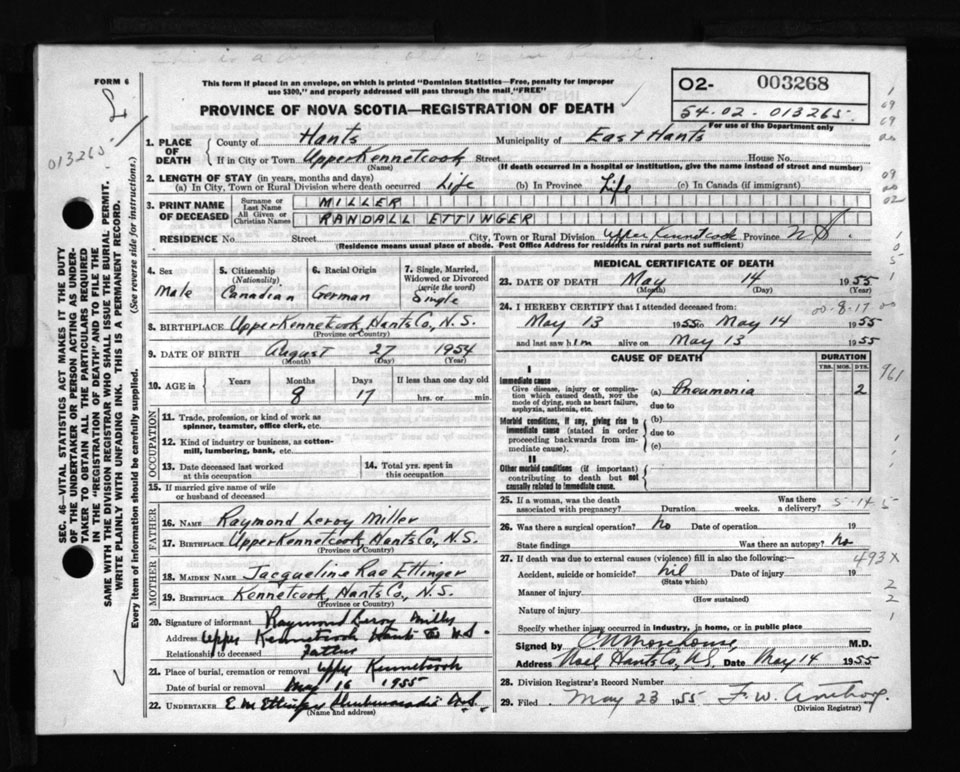 FORM 6
This form if placed in an envelope, on which is printed "Dominion Statistics—Free, penalty for improper
use $300," and properly addressed will pass through the mail "FREE"
PROVINCE OF NOVA SCOTIA—REGISTRATION OF DEATH
O2- 003268
54-02-013265
For use of the Department only
013265
SEC. 46—VITAL STATISTICS ACT MAKES IT THE DUTY
OF THE UNDERTAKER OR PERSON ACTING AS UNDER-
TAKER TO OBTAIN ALL THE PARTICULARS REQUIRED
IN THE "REGISTRATION OF DEATH" AND TO FILE THE
SAME WITH THE DIVISION REGISTRAR WHO SHALL ISSUE THE BURIAL PERMIT.
WRITE PLAINLY WITH UNFADING INK. THIS IS A PERMANENT RECORD.
Every item of information should be carefully supplied. (See reverse side for instructions.)
1. PLACE OF DEATH
County of Hants Municipality of East Hants
If in City or Town Upper Kennetcook Street House No.
(Name) (If death occurred in a hospital or institution, give the name instead of street and number)
2. LENGTH OF STAY (in years, months and days)
(a) In City, Town or Rural Division where death occurred Life (b) In Province Life (c) In Canada (if immigrant)
3. PRINT NAME OF DECEASED
Surname or Last Name MILLER
All Given or Christian Names RANDALL ETTINGER
RESIDENCE No. Street City, Town or Rural Division Upper Kennetcook Province N.S.
(Residence means usual place of abode. Post Office Address for residents in rural parts not sufficient)
4. Sex
Male
5. Citizenship
(Nationality)
Canadian
6. Racial Origin
German
7. Single, Married,
Widowed or Divorced
(write the word)
Single
8. BIRTHPLACE Upper Kennetcook, Hants Co, N.S.
(Province or Country)
9. DATE OF BIRTH August 27 1954
(Month) (Day) (Year)
10. AGE in Years Months Days If less than one day old
8 17 hrs. or min.
OCCUPATION
11. Trade, profession, or kind of work as
spinner, teamster, office clerk, etc.
12. Kind of industry or business, as cotton-
mill, lumbering, bank, etc.
13. Date deceased last worked
at this occupation
14. Total yrs. spent in
this occupation
15. If married give name of wife
or husband of deceased
FATHER
16. NAME Raymond Leroy Miller
17. BIRTHPLACE Upper Kennetcook, Hants Co, N.S.
(Province or Country)
MOTHER
18. MAIDEN NAME Jacqueline Rae Ettinger
19. BIRTHPLACE Kennetcook, Hants Co, N.S.
(Province or Country)
20. Signature of informant Raymond Leroy Miller
Address Upper Kennetcook Hants Co N.S.
Relationship to deceased Father
21. Place of burial, cremation or removal Upper Kennetcook
Date of burial or removal May 16 1955
22. UNDERTAKER E M Ettinger N.S.
(Name and address)
MEDICAL CERTIFICATE OF DEATH
23. DATE OF DEATH May 14 1955
(Month) (Day) (Year)
24. I HEREBY CERTIFY that I attended deceased from
00-8-17
May 13 1955 to May 14 1955
and last saw him alive on May 13 1955
CAUSE OF DEATH DURATION
YRS. MOS. DYS.
I
Immediate cause
Give disease, injury or complica-
tion which caused death, NOT the
mode of dying, such as heart failure,
asphyxia, asthenia, etc.
(a) Pneumonia 2
due to
Morbid conditions, if any, giving rise to
immediate cause (stated in order
proceeding backwards from im-
mediate cause).
(b)
due to
(c)
II
Other morbid conditions (if important)
contributing to death but not
causally related to immediate cause.
25. If a woman, was the death
associated with pregnancy? Duration weeks. Was there
a delivery?
5-14-5
26. Was there a surgical operation? no Date of operation 19
State findings Was there an autopsy? no
27. If death was due to external causes (violence) fill in also the following:—
493X
Accident, suicide or homicide? nil Date of injury 19
(State which)
Manner of injury
(How sustained)
Nature of injury
Specify whether injury occurred in industry, in home, or in public place
Signed by C. M. Morehouse, M.D.
Address Noel, Hants Co, N.S. Date May 14 1955
28. Division Registrar's Record Number
29. Filed May 23 1955 F. W.
(Division Registrar)
961